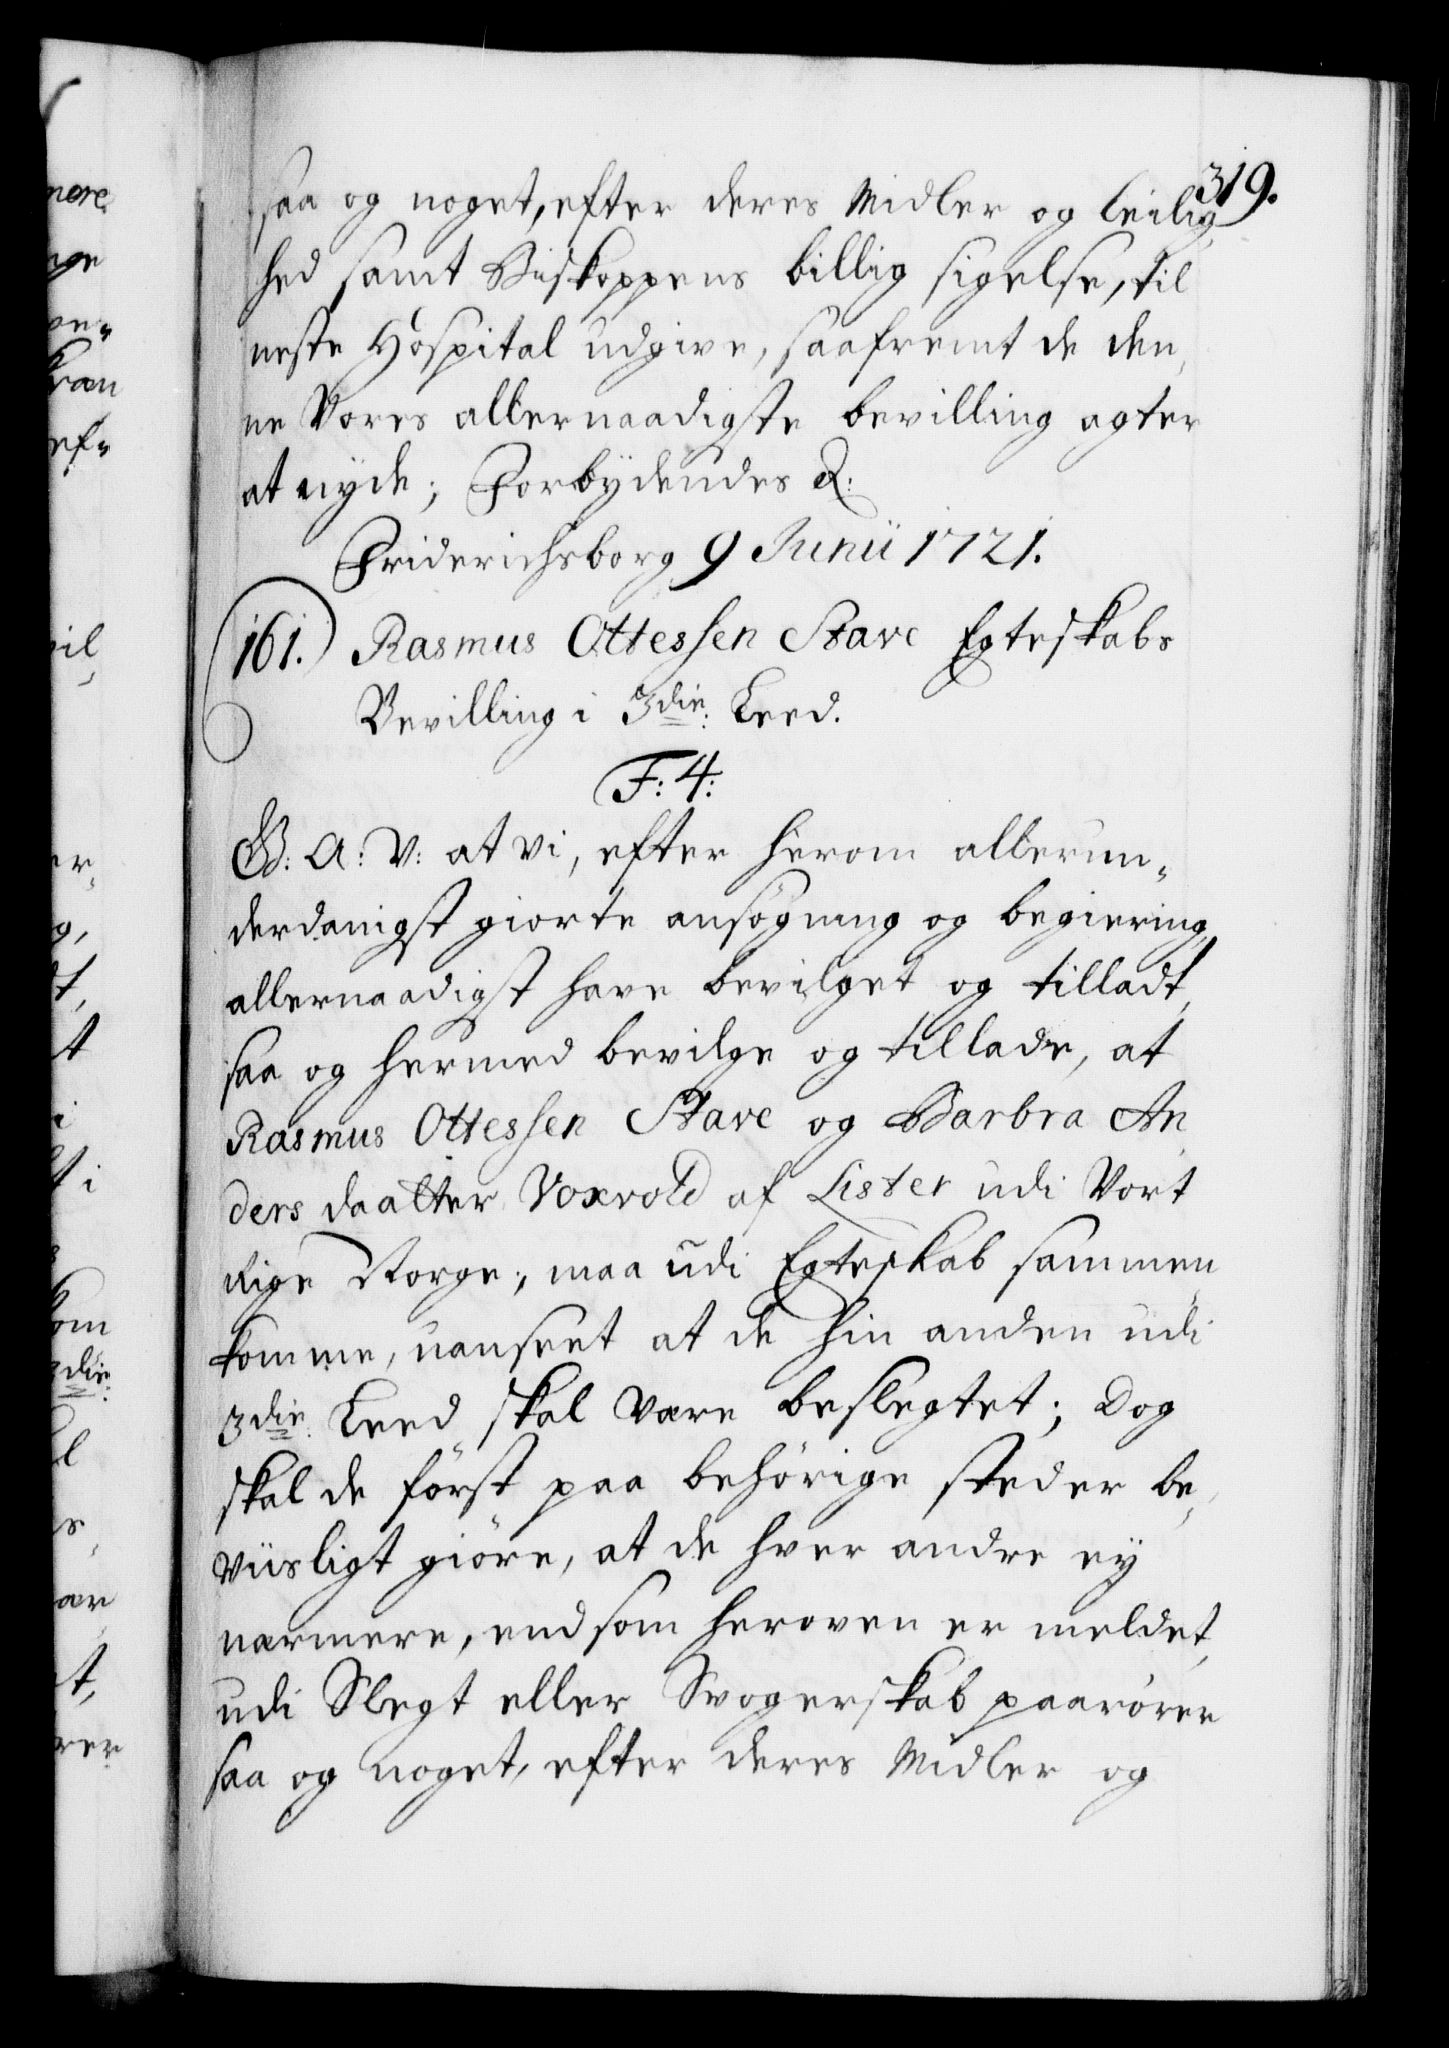 319.
saa og noget, efter deres Midler og leilig
hed samt Biskoppens billig sigelse, til
neste Hospital udgive, saafremt de den,
ne Vores allernaadigste bevilling agter
at nyde; Forbydendes &:
Friderichsborg 9 Junii 1721.
161. Rasmus Ottessen Stave Egteskabs
Bevilling i 3die: Leed.
F: 4:
G: A: V: at vi, efter herom allerun„
derdanigst giorte ansøgning og begiering,
allernaadigst have bevilget og tilladt,
saa og hermed bevilge og tillade, at
Rasmus Ottessen Stave og Barbra An
ders daatter Voxvold af Lister udi Vort
Rige Norge, maa udi Egteskab sammen
komme, uanseet at de hin anden udi
3die: Leed skal være beslegtet; Dog
skal de först paa behörige steder be„
viisligt giöre, at de hver andre ey
nærmere, end som heroven er meldet,
udi Slegt eller Svogerskab paarörer
saa og noget, efter deres Midler og